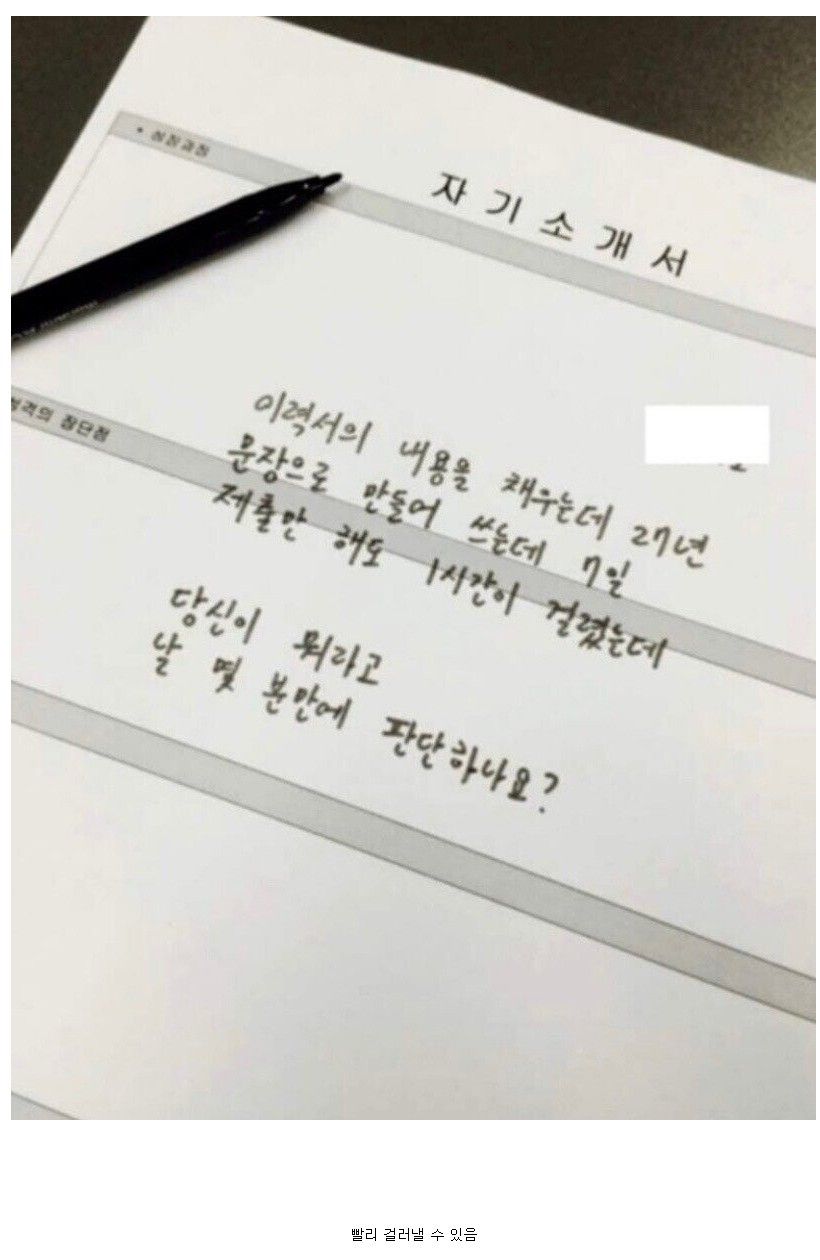 자기소개서
• 성장과정
이력서의 내용을 채우는데 27년
문장으로 만들어 쓰는데 7일
제출만 해도 1시간이 걸렸는데
성격의 장단점
당신이 뭐라고
날 몇 분만에 판단하나요?
빨리 걸러낼 수 있음